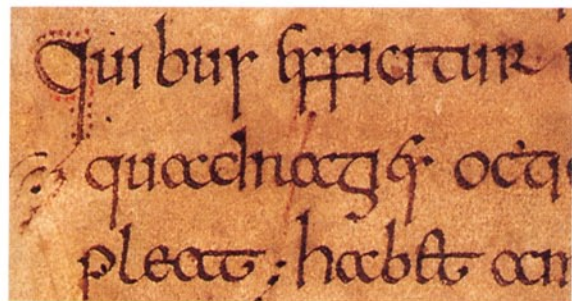 Quibus efficitur i
quadragies octie
pleat; habet am